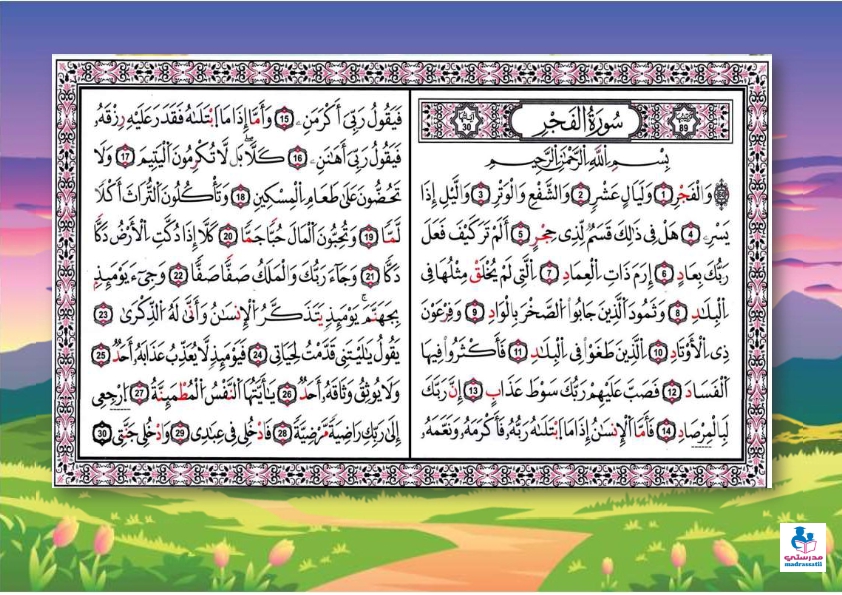 سُورَةُ الْفَجْرِ
آيَاتُهَا 30
تَرْتِيبُهَا 89
بِسْمِ اللَّهِ الرَّحْمَٰنِ الرَّحِيمِ
وَالْفَجْرِ 1 وَلَيَالٍ عَشْرٍ 2 وَالشَّفْعِ وَالْوَتْرِ 3 وَاللَّيْلِ إِذَا
يَسْرِ 4 هَلْ فِي ذَٰلِكَ قَسَمٌ لِّذِي حِجْرٍ 5 أَلَمْ تَرَ كَيْفَ فَعَلَ
رَبُّكَ بِعَادٍ 6 إِرَمَ ذَاتِ الْعِمَادِ 7 الَّتِي لَمْ يُخْلَقْ مِثْلُهَا فِي
الْبِلَٰدِ 8 وَثَمُودَ الَّذِينَ جَابُوا الصَّخْرَ بِالْوَادِ 9 وَفِرْعَوْنَ
ذِي الْأَوْتَادِ 10 الَّذِينَ طَغَوْا فِي الْبِلَٰدِ 11 فَأَكْثَرُوا فِيهَا
الْفَسَادَ 12 فَصَبَّ عَلَيْهِمْ رَبُّكَ سَوْطَ عَذَابٍ 13 إِنَّ رَبَّكَ
لَبِالْمِرْصَادِ 14 فَأَمَّا الْإِنسَٰنُ إِذَا مَا ابْتَلَٰهُ رَبُّهُ فَأَكْرَمَهُ وَنَعَّمَهُ
فَيَقُولُ رَبِّي أَكْرَمَنِ 15 وَأَمَّا إِذَا مَا ابْتَلَٰهُ فَقَدَرَ عَلَيْهِ رِزْقَهُ
فَيَقُولُ رَبِّي أَهَٰنَنِ 16 كَلَّا بَل لَّا تُكْرِمُونَ الْيَتِيمَ 17 وَلَا
تَحُضُّونَ عَلَىٰ طَعَامِ الْمِسْكِينِ 18 وَتَأْكُلُونَ التُّرَاثَ أَكْلًا
لَّمًّا 19 وَتُحِبُّونَ الْمَالَ حُبًّا جَمًّا 20 كَلَّا إِذَا دُكَّتِ الْأَرْضُ دَكًّا
دَكًّا 21 وَجَاءَ رَبُّكَ وَالْمَلَكُ صَفًّا صَفًّا 22 وَجِيءَ يَوْمَئِذٍ
بِجَهَنَّمَ يَوْمَئِذٍ يَتَذَكَّرُ الْإِنسَٰنُ وَأَنَّىٰ لَهُ الذِّكْرَىٰ 23
يَقُولُ يَٰلَيْتَنِي قَدَّمْتُ لِحَيَاتِي 24 فَيَوْمَئِذٍ لَّا يُعَذِّبُ عَذَابَهُ أَحَدٌ 25
وَلَا يُوثِقُ وَثَاقَهُ أَحَدٌ 26 يَٰأَيَّتُهَا النَّفْسُ الْمُطْمَئِنَّةُ 27 ارْجِعِي
إِلَىٰ رَبِّكِ رَاضِيَةً مَّرْضِيَّةً 28 فَادْخُلِي فِي عِبَٰدِي 29 وَادْخُلِي جَنَّتِي 30
مدرستي
madrassatii